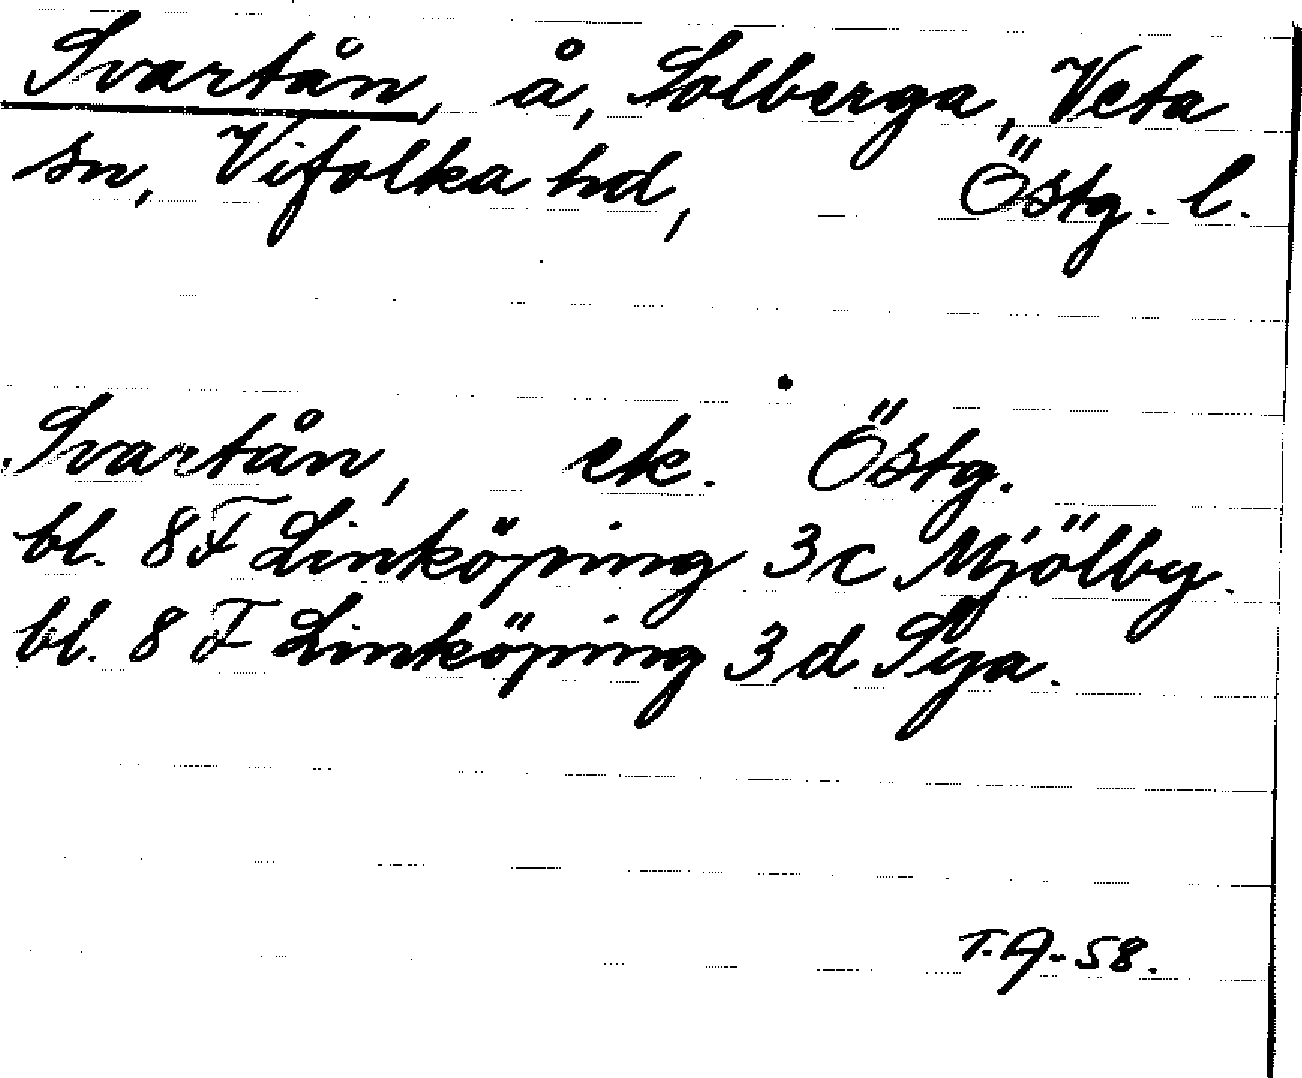 Svartån, å, Solberga, Veta
sn, Vifolka hd, Östg. l.
Svartån, ek. Östg.
bl. 8 F Linköping 3 c Mjölby.
bl. 8 F Linköping 3 d Sya.
T.A-58.